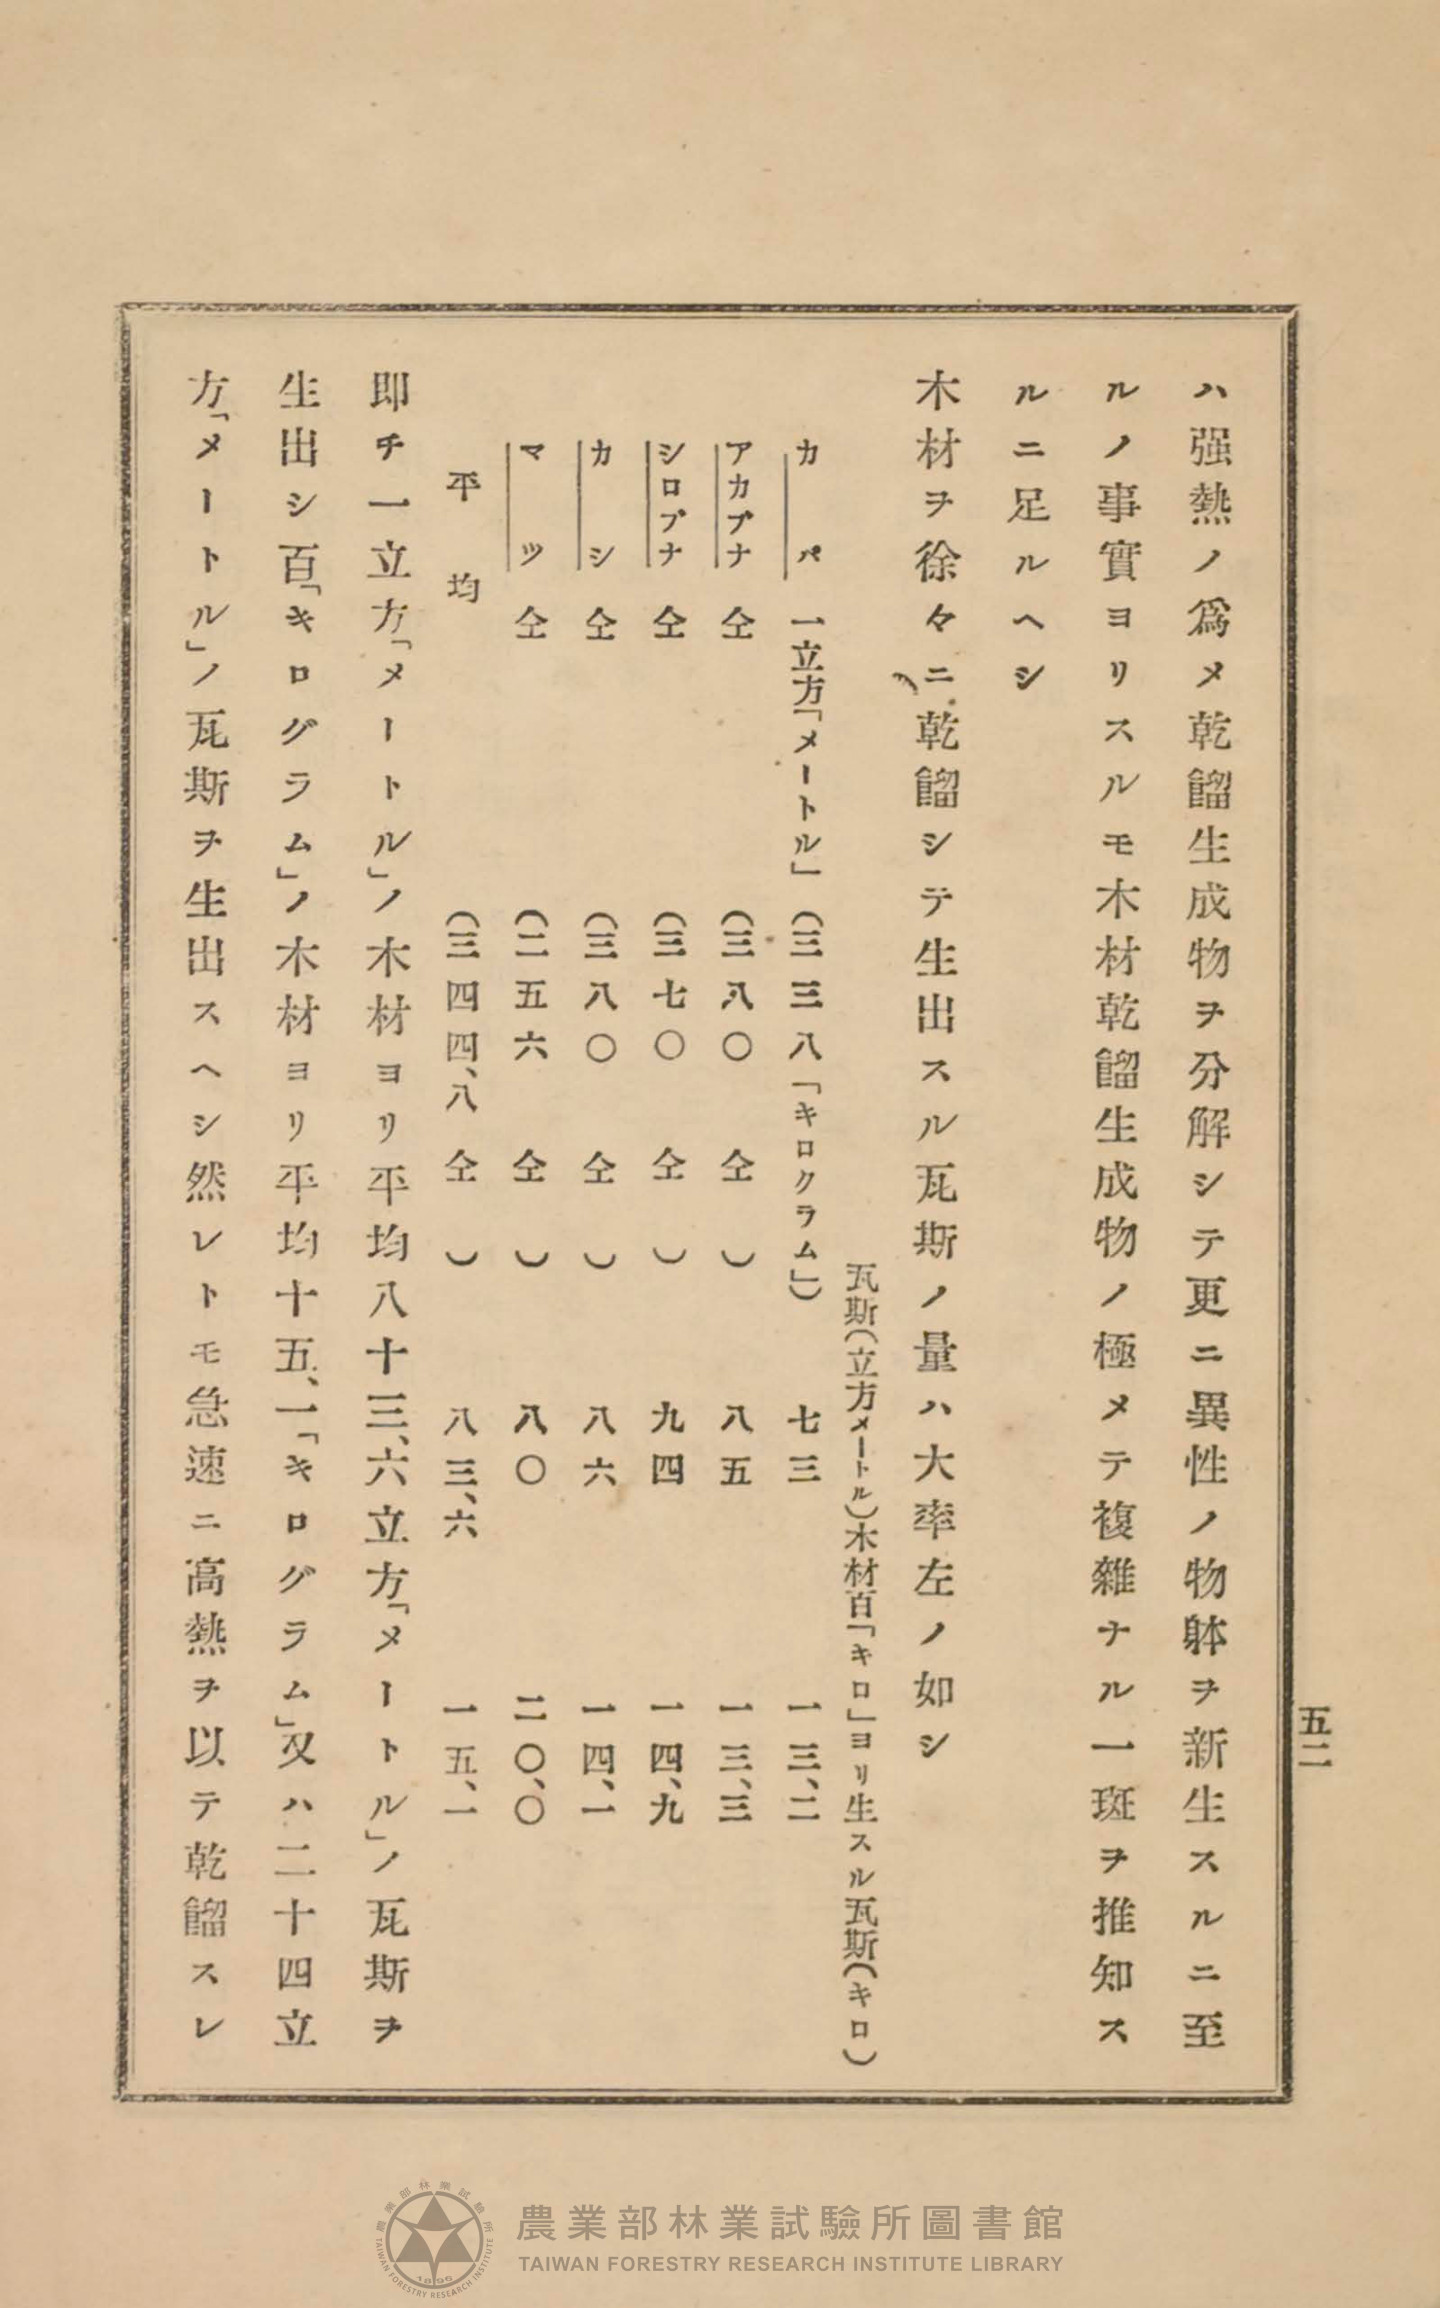 五二
ハ强熱ノ爲メ乾餾生成物ヲ分解シテ更ニ異性ノ物躰ヲ新生スルニ至
ルノ事實ヨリスルモ木材乾餾生成物ノ極メテ複雜ナル一斑ヲ推知ス
ルニ足ルヘシ
木材ヲ徐々ニ乾餾シテ生出スル瓦斯ノ量ハ大率左ノ如シ
瓦斯(立方メートル)木材百「キロ」ヨリ生スル瓦斯(キロ)
カバ 一立方「メートル」(三三八「キロクラム」) 七三 一三、二
アカブナ 仝 (三八〇 仝 ) 八五 一三、三
シロブナ 仝 (三七〇 仝 ) 九四 一四、九
カシ 仝 (三八〇 仝 ) 八六 一四、一
マツ 仝 (二五六 仝 ) 八〇 二〇、〇
平均 (三四四、八 仝 ) 八三、六 一五、一
即チ一立方「メートル」ノ木材ヨリ平均八十三、六立方「メートル」ノ瓦斯ヲ
生出シ百「キログラム」ノ木材ヨリ平均十五、一「キログラム」又ハ二十四立
方「メートル」ノ瓦斯ヲ生出スヘシ然レトモ急速ニ高熱ヲ以テ乾餾スレ
農業部林業試驗所圖書館
TAIWAN FORESTRY RESEARCH INSTITUTE LIBRARY
農業部林業試驗所
TAIWAN FORESTRY RESEARCH INSTITUTE
1896